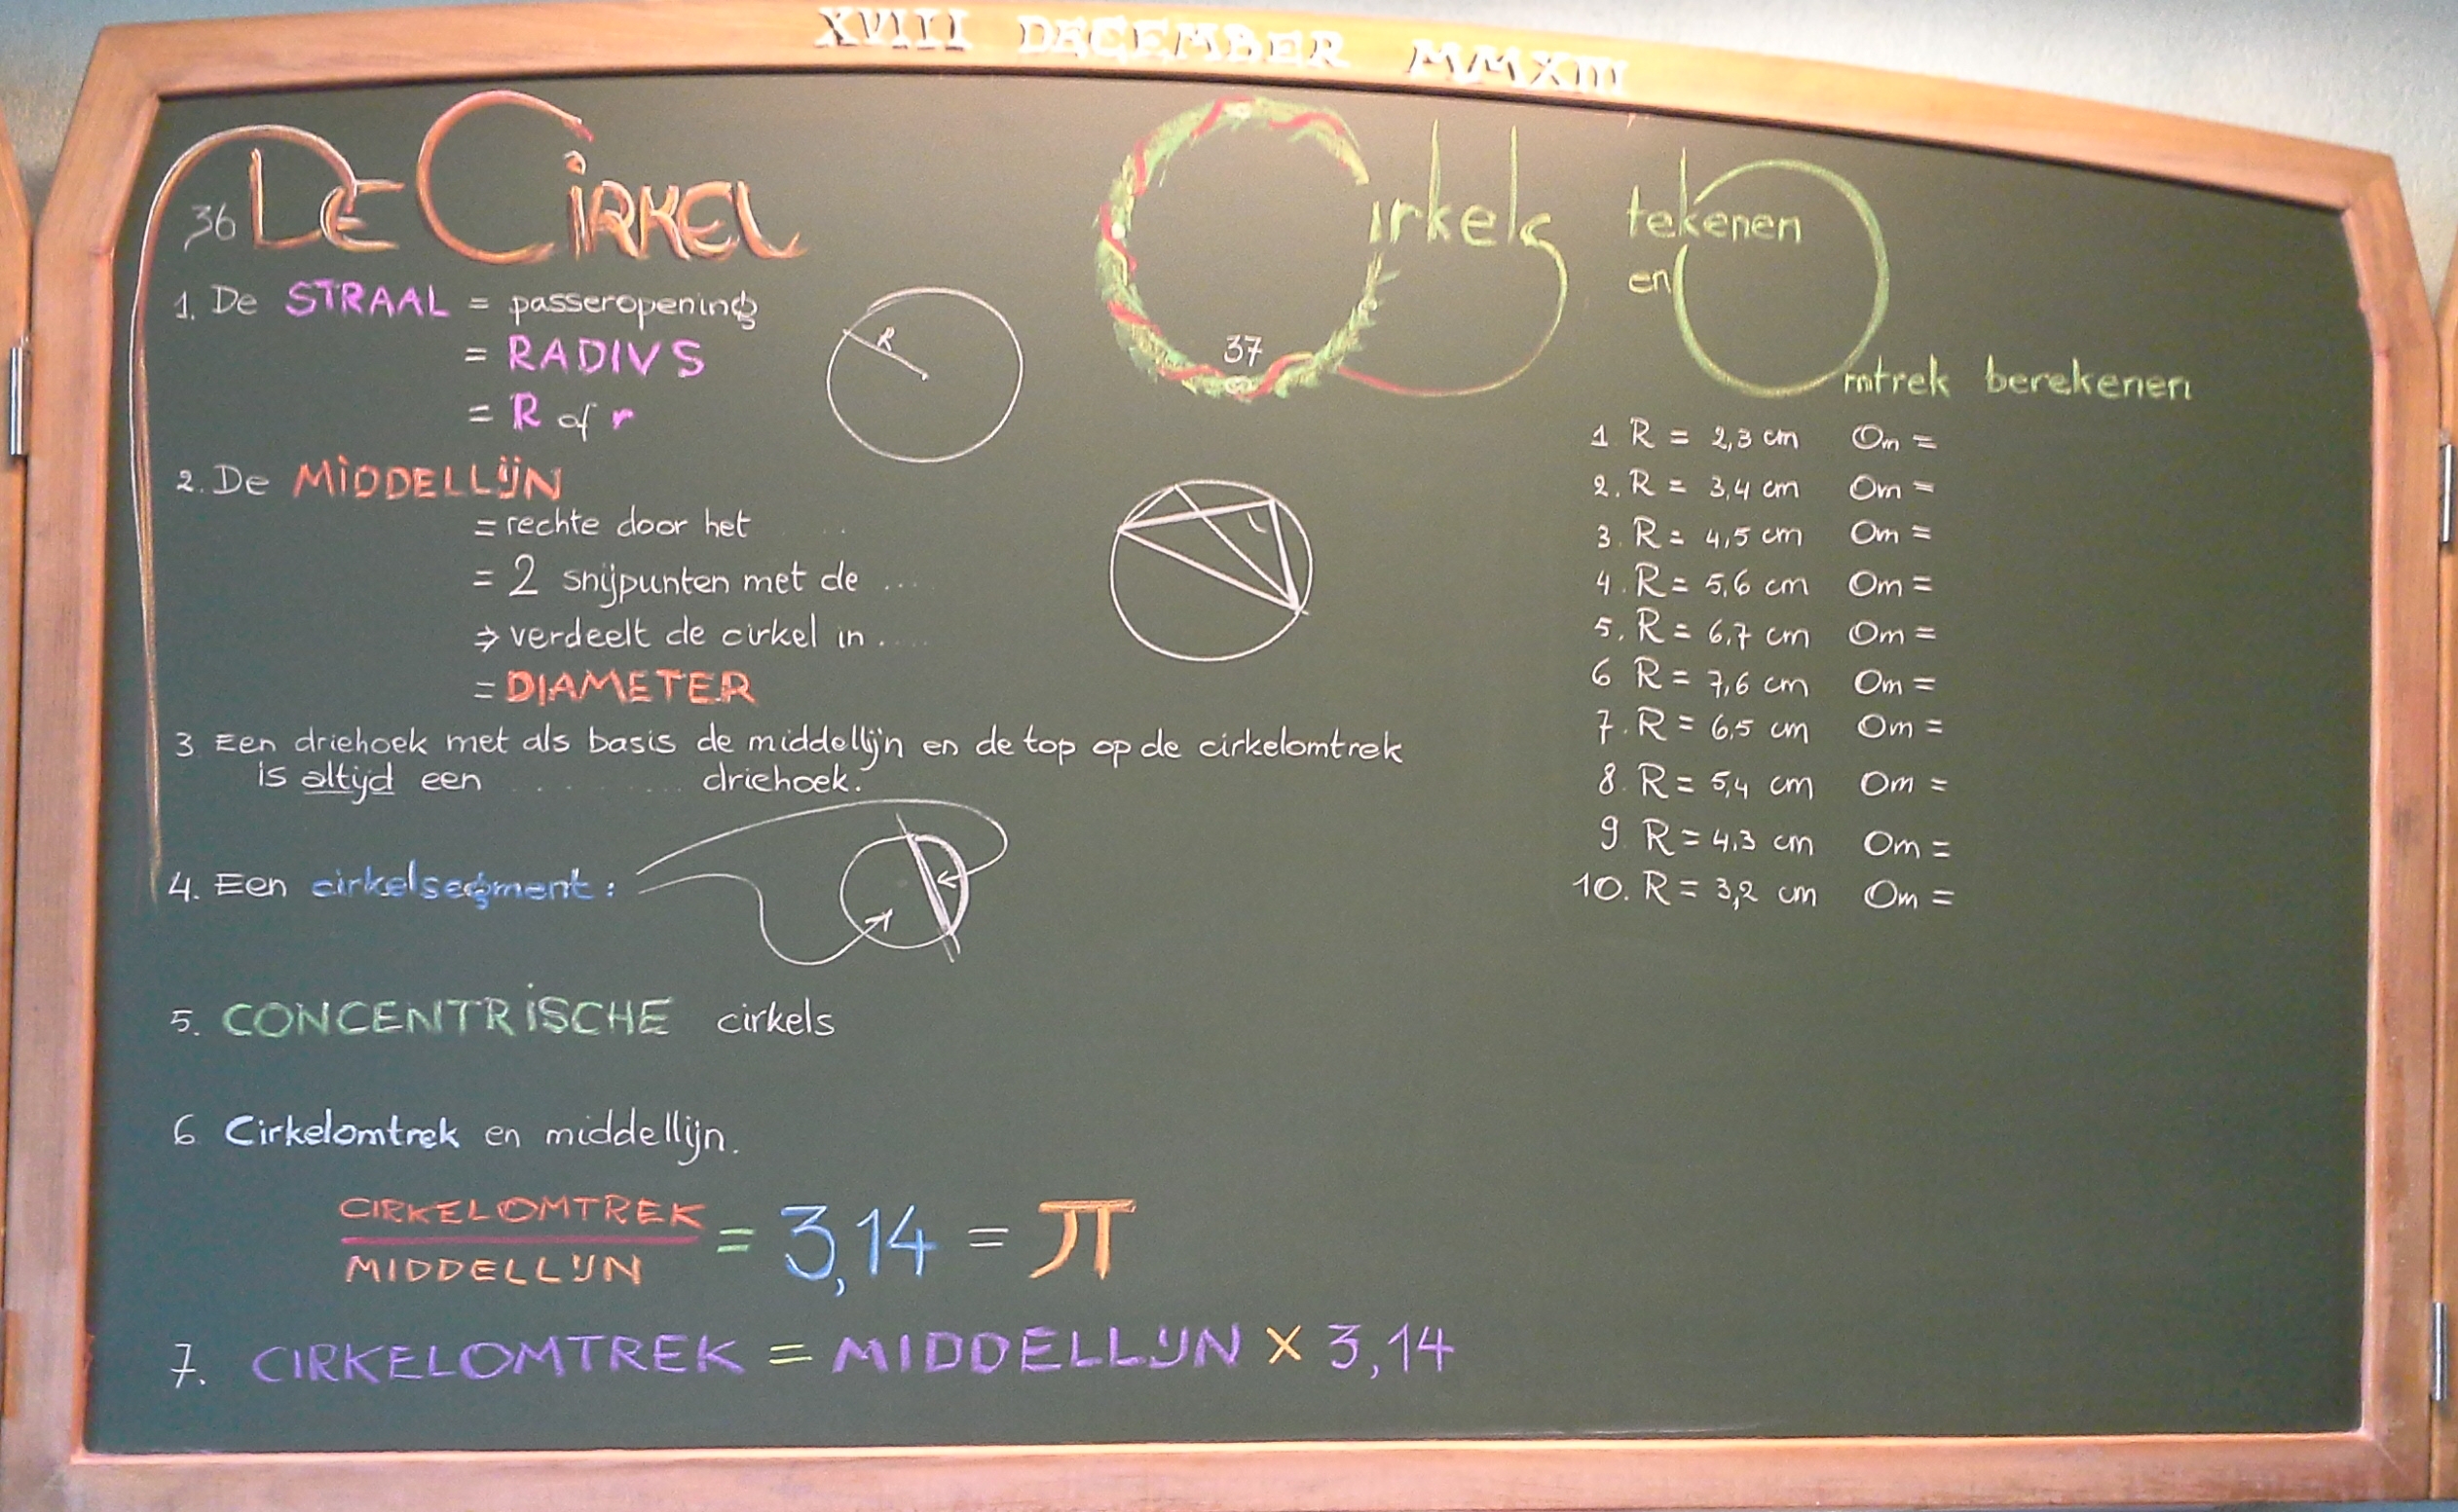 XVIII DECEMBER MMXIII
36 DE CIRKEL
1. De STRAAL = passeropening
= RADIVS
= R of r
R
2. De MIDDELLIJN
= rechte door het ....
= 2 snijpunten met de ....
⇒ verdeelt de cirkel in ....
= DIAMETER
3 Een driehoek met als basis de middellijn en de top op de cirkelomtrek
is altijd een .......... driehoek.
4. Een cirkelsegment:
5. CONCENTRISCHE cirkels
6 Cirkelomtrek en middellijn.
CIRKELOMTREK
MIDDELLIJN
= 3,14 = π
7. CIRKELOMTREK = MIDDELLIJN × 3,14
Cirkels tekenen
37
en
Omtrek berekenen
1 R = 2,3 cm Om =
2. R = 3,4 cm Om =
3. R = 4,5 cm Om =
4. R = 5,6 cm Om =
5. R = 6,7 cm Om =
6 R = 7,6 cm Om =
7. R = 6,5 cm Om =
8. R = 5,4 cm Om =
9 R = 4,3 cm Om =
10. R = 3,2 cm Om =